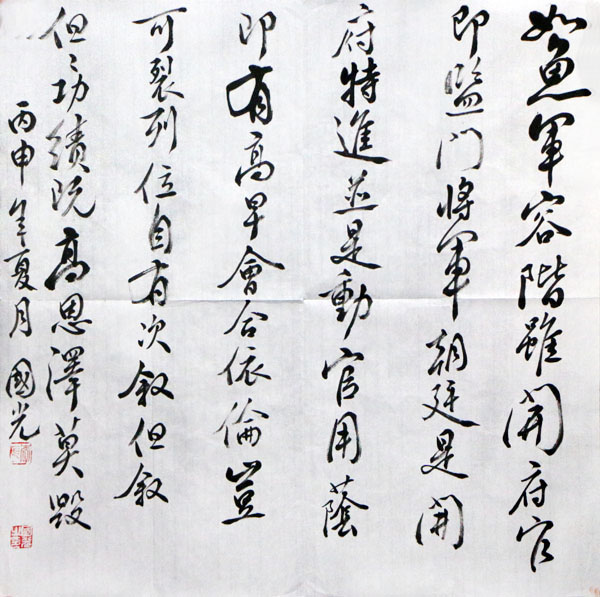 如魚軍容階雖開府官
即監門將軍朝廷是開
府特進並是動官用蔭
即有高早會合依倫豈
可裂列位自有次叙但叙
但功績既高恩澤莫毀
丙申年夏月 國光